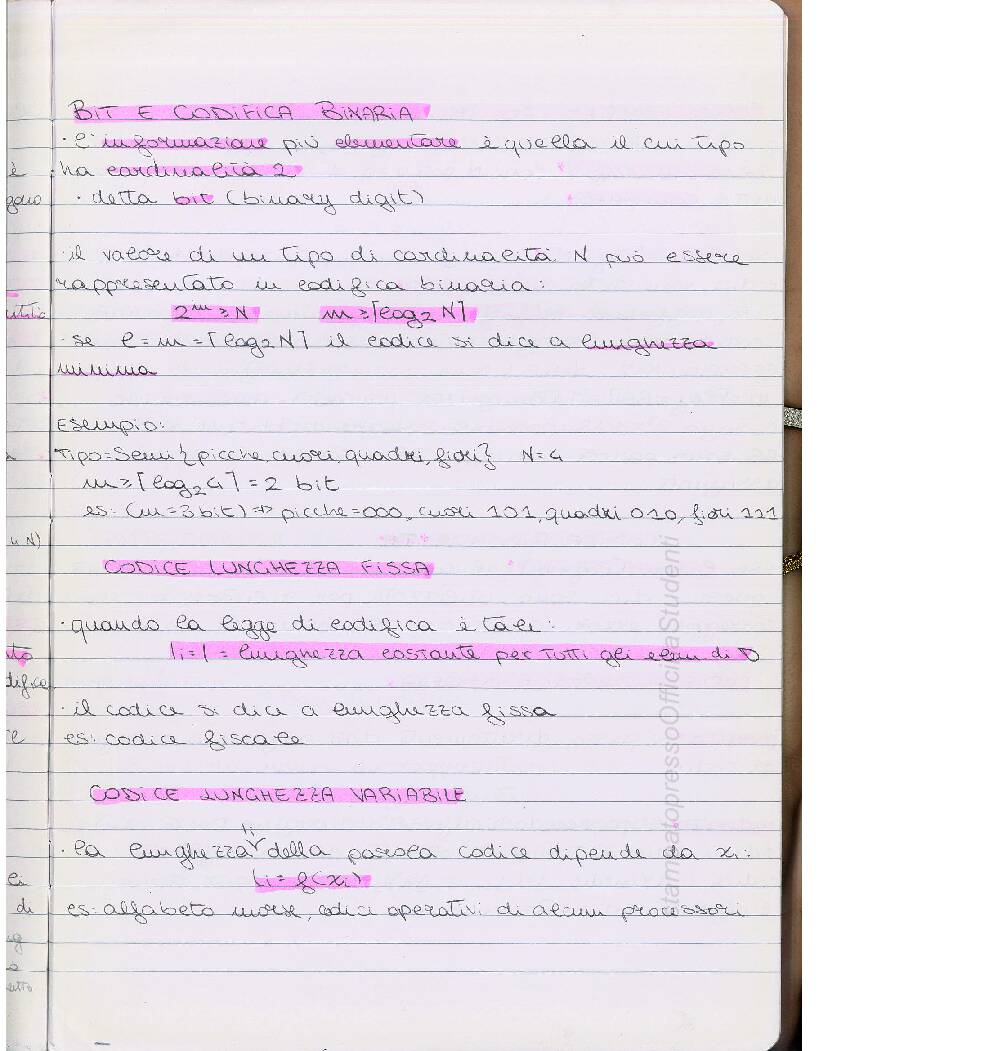 BIT E CODIFICA BINARIA
· l'informazione più elementare è quella il cui tipo
ha cardinalità 2
· detta bit (binary digit)
· il valore di un tipo di cardinalità N può essere
rappresentato in codifica binaria:
2^m ≥ N   m ≥ ⌈log₂ N⌉
· se l = m = ⌈log₂ N⌉ il codice si dice a lunghezza
minima
Esempio:
Tipo = Semi {picche, cuori, quadri, fiori}   N = 4
m ≥ ⌈log₂ 4⌉ = 2 bit
es: (m = 3 bit) => picche = 000, cuori 101, quadri 010, fiori 111
CODICE LUNGHEZZA FISSA
· quando la legge di codifica è tale:
li = l = lunghezza costante per tutti gli elem di D
· il codice si dice a lunghezza fissa
es: codice fiscale
CODICE LUNGHEZZA VARIABILE
· la lunghezza li della parola codice dipende da xi:
li = f(xi)
es: alfabeto morse, codici operativi di alcuni processori
è
u N)
di